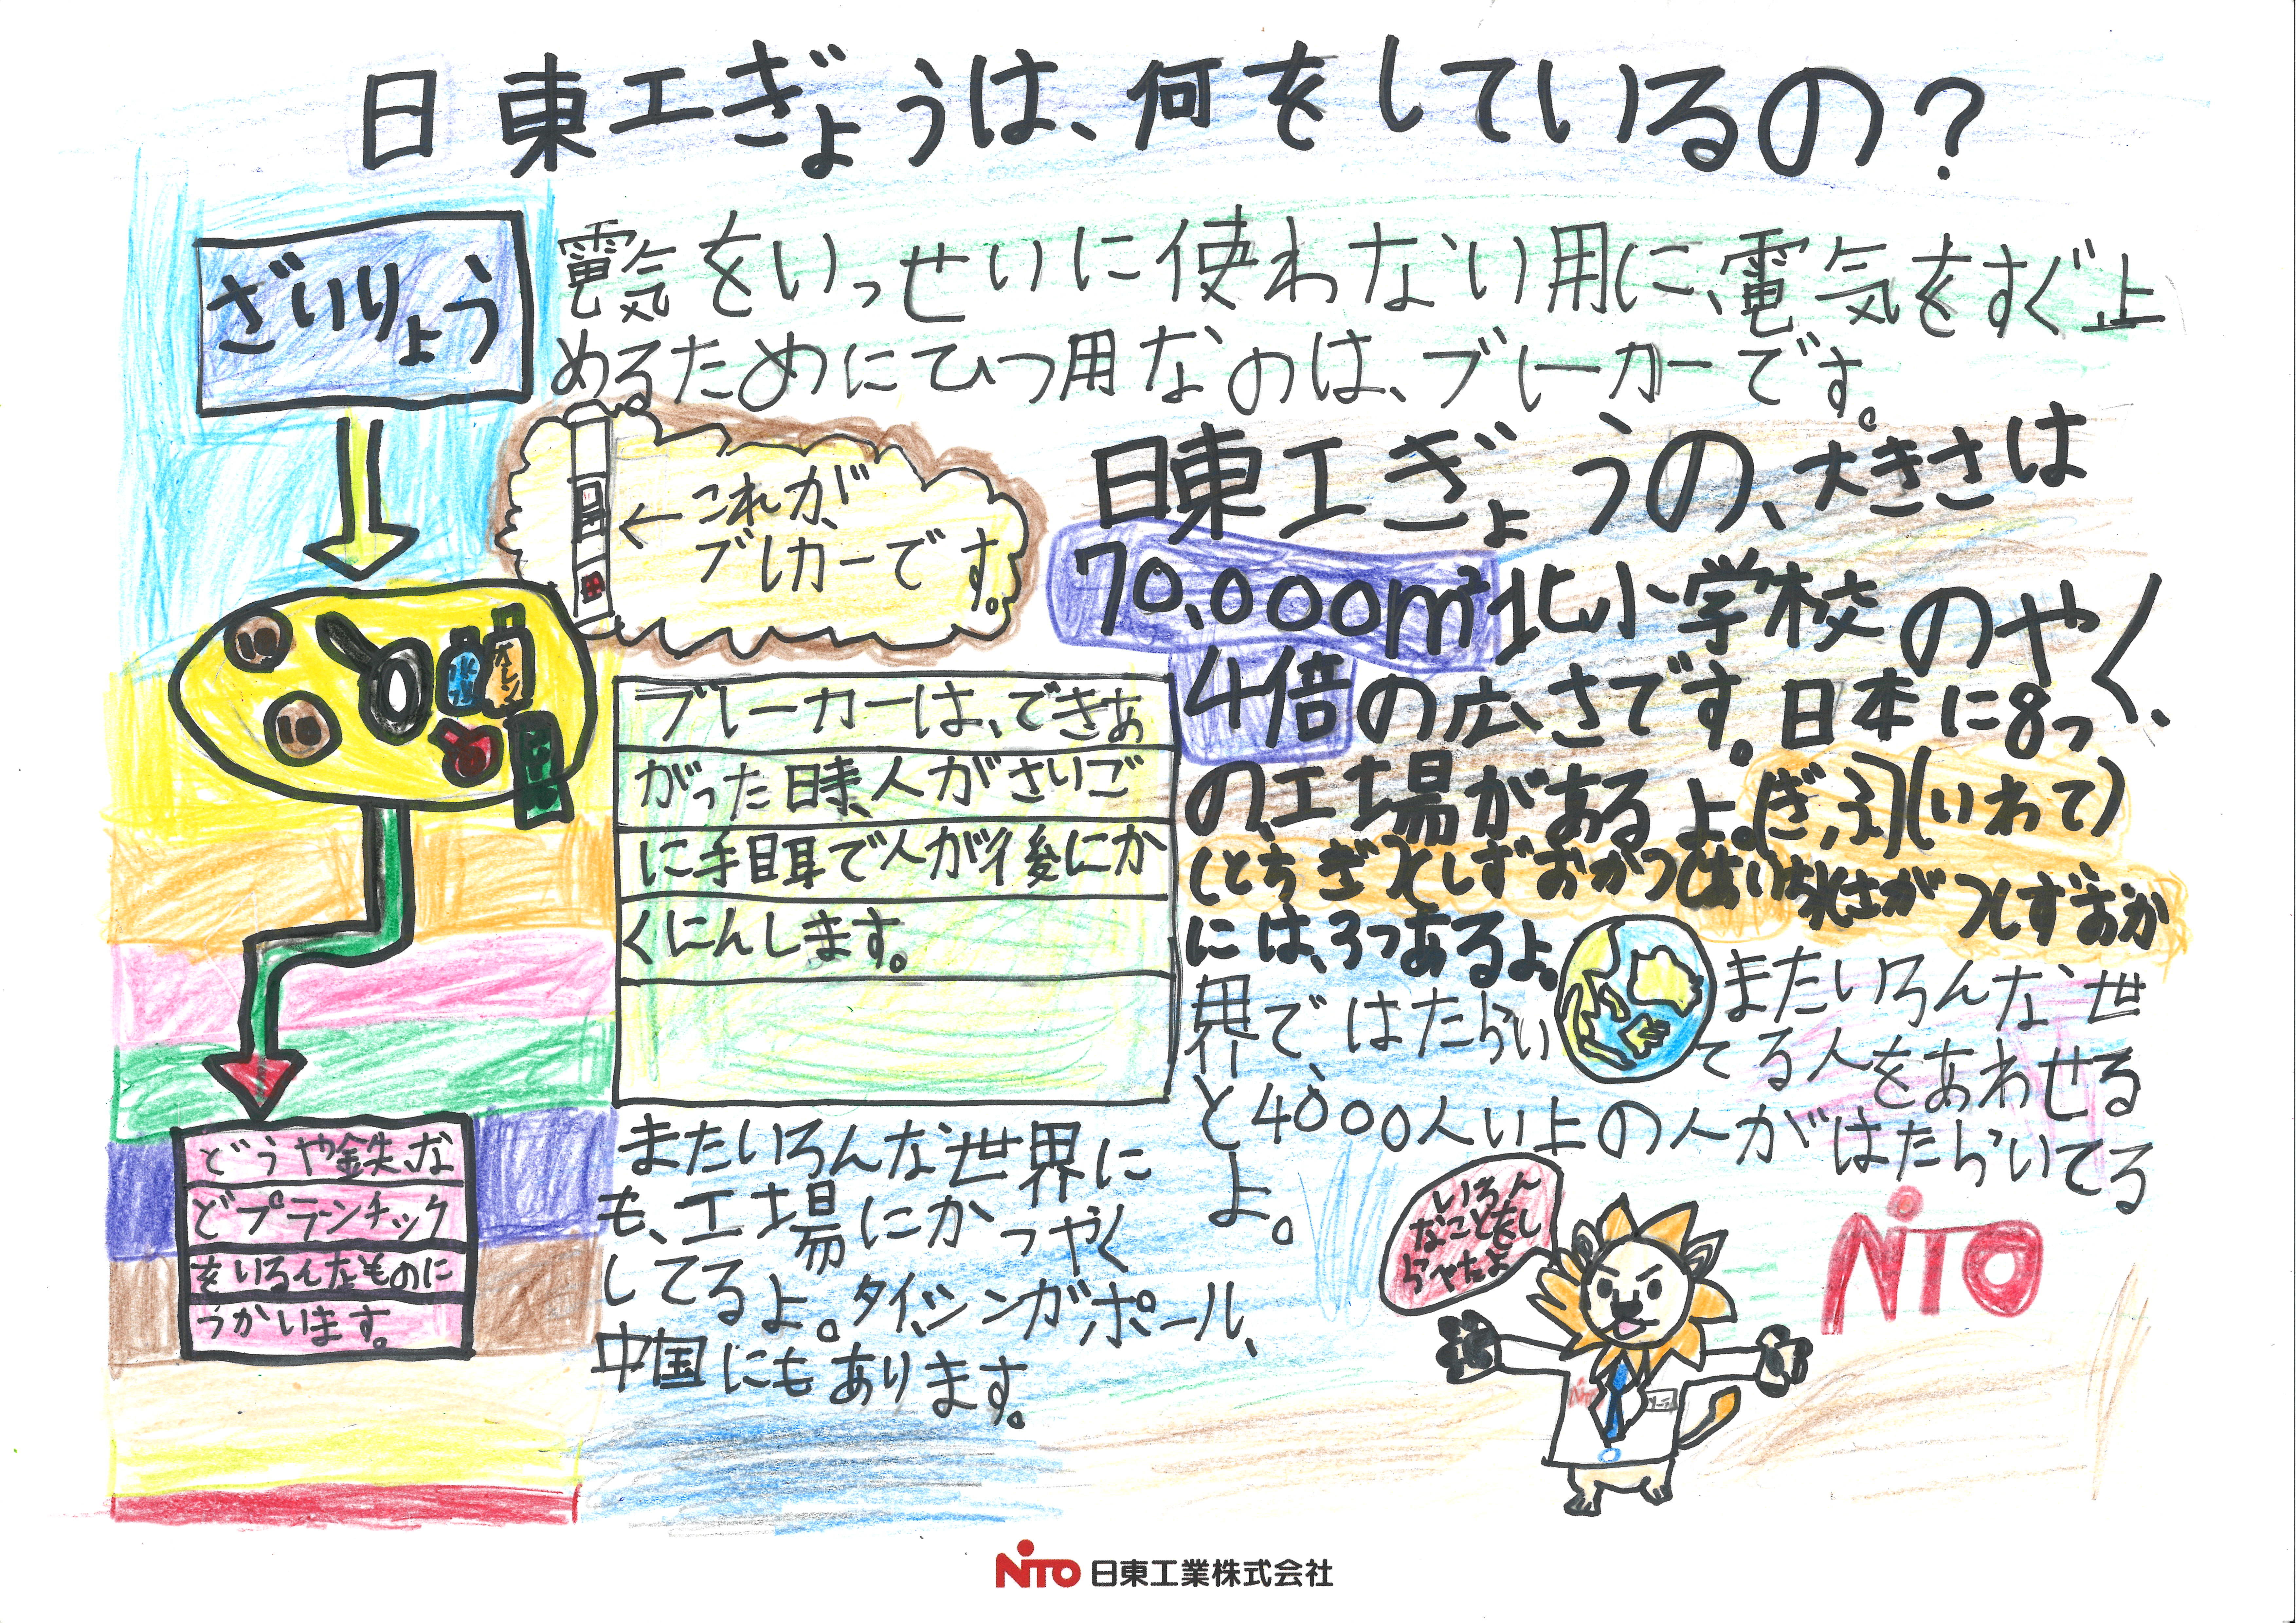 日東工ぎょうは、何をしているの?
ざいりょう
電気をいっせいに使わない用に、電気をすぐ止
めるためにひつ用なのは、ブレーカーです。
←これが、
ブレカーです。
10
10
水
オレンジ
ブレーカーは、できあ
がった時、人がさいご
に手目耳で人が後にか
くにんします。
どうや鉄な
どプラーンチック
をいろんなものに
うかいます。
日東工ぎょうの、大きさは
70,000㎡北小学校のやく、
4倍の広さです。日本に8っ
の、工場があるよ。(ぎふ)(いわて)
(とちぎ)(しずおか)(あいち)(さが)(しずおか
には、3つあるよ。
またいろんな世
界で、はたらいてる人をあわせる
と4000人い上の人がはたらいてる
よ。
またいろんな世界に
も、工場にかっやく
してるよ。タイ、シンガポール、
中国にもあります。
いろん
なことをし
らゃたよ
NITO
NITO
NITO 日東工業株式会社